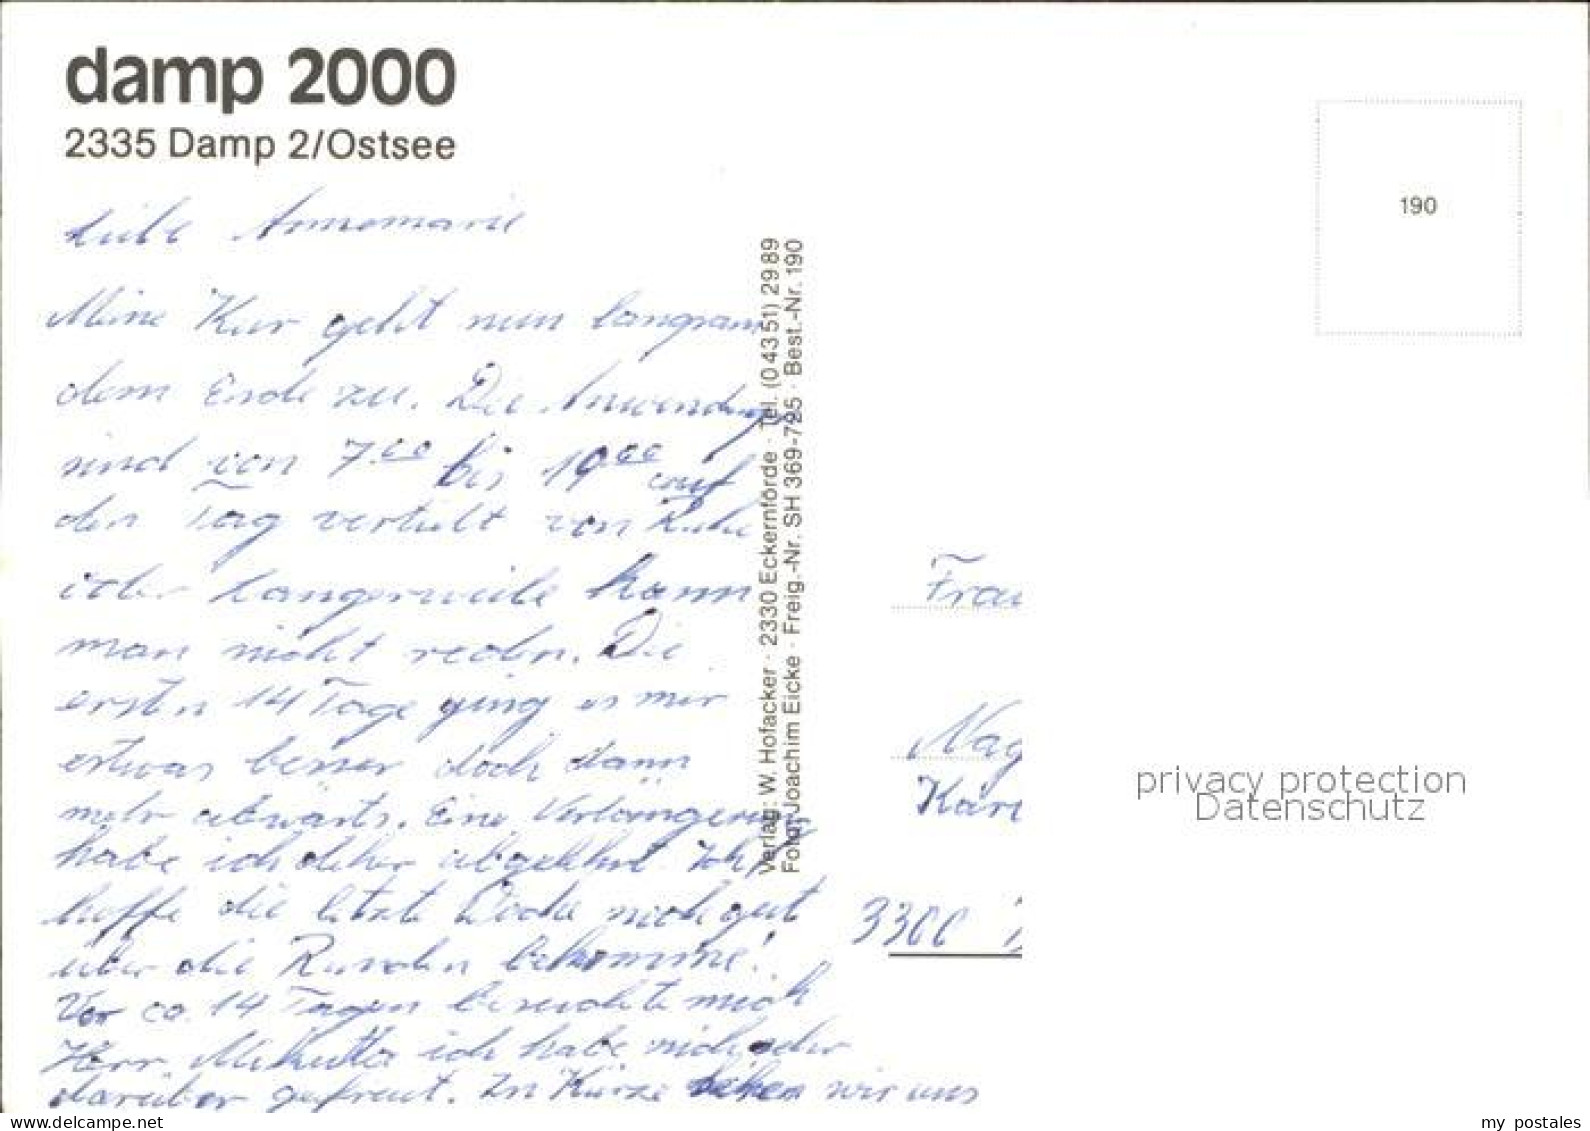 damp 2000
2335 Damp 2/Ostsee
190
Liebe Annemarie
Meine Kur geht nun langsam
dem Ende zu. Die Anwendungen
sind von 7.00 bis 19.00 auf
den Tag verteilt von Ruhe
oder Langerweile kann
man nicht reden. Die
ersten 14 Tage ging es mir
etwas besser doch dann
mehr abwärts. Eine Verlängerung
habe ich daher abgelehnt. Ich
hoffe die letzte Woche noch gut
über die Runden bekomme!
Vor ca. 14 Tagen besuchte mich
Herr Mikutta ich habe mich sehr
darüber gefreut. In Kürze sehen wir uns
Verlag: W. Hofacker · 2330 Eckernförde · Tel. (0 43 51) 29 89
Foto: Joachim Eicke · Freig.-Nr. SH 369-725 · Best.-Nr. 190
Frau
Nag
Kar
3300
privacy protection
Datenschutz
my postales
www.delcampe.net